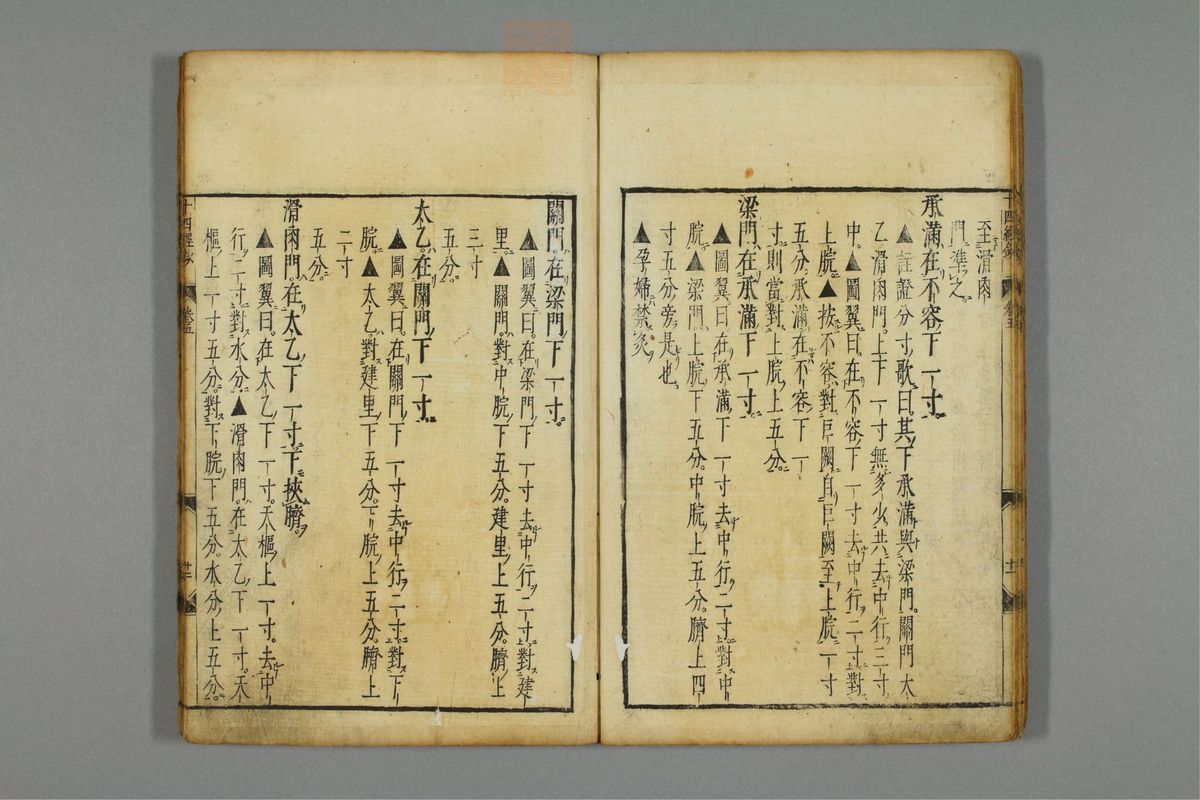 至滑肉
門準之
承滿在不容下一寸
▲註證分寸歌曰其下承滿與梁門關門太
乙滑肉門上下一寸無多少共去中行二寸
中▲圖翼曰在不容下一寸去中行二寸對
上脘▲按不容對巨闕自巨闕至上脘一寸
五分承滿在不容下一
寸則當對上脘上五分
梁門在承滿下一寸
▲圖翼曰在承滿下一寸去中行二寸對中
脘▲梁門上脘下五分中脘上五分臍上四
寸五分旁是也
▲孕婦禁灸
關門在梁門下一寸
▲圖翼曰在梁門下一寸去中行二寸對建
里▲關門對中脘下五分建里上五分臍上
三寸
五分
太乙在關門下一寸
▲圖翼曰在關門下一寸去中行二寸對下
脘▲太乙對建里下五分下脘上五分臍上
二寸
五分
滑肉門在太乙下一寸下挾臍
▲圖翼曰在太乙下一寸天樞上一寸去中
行二寸對水分▲滑肉門在太乙下一寸天
樞上一寸五分對下脘下五分水分上五分